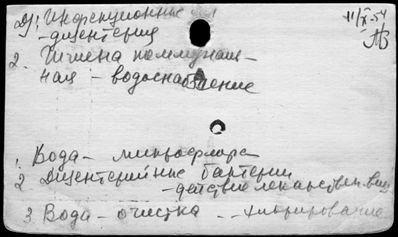 Д: Инфекционные
11/X-54
- дизентерия
АВ
2. Гигиена коммуналь-
ная - водоснабжение
1. Вода - микрофлора
2 Дизентерийные бактерии
- действие лекарствен. вещ
3 Вода - очистка -- хлорирование